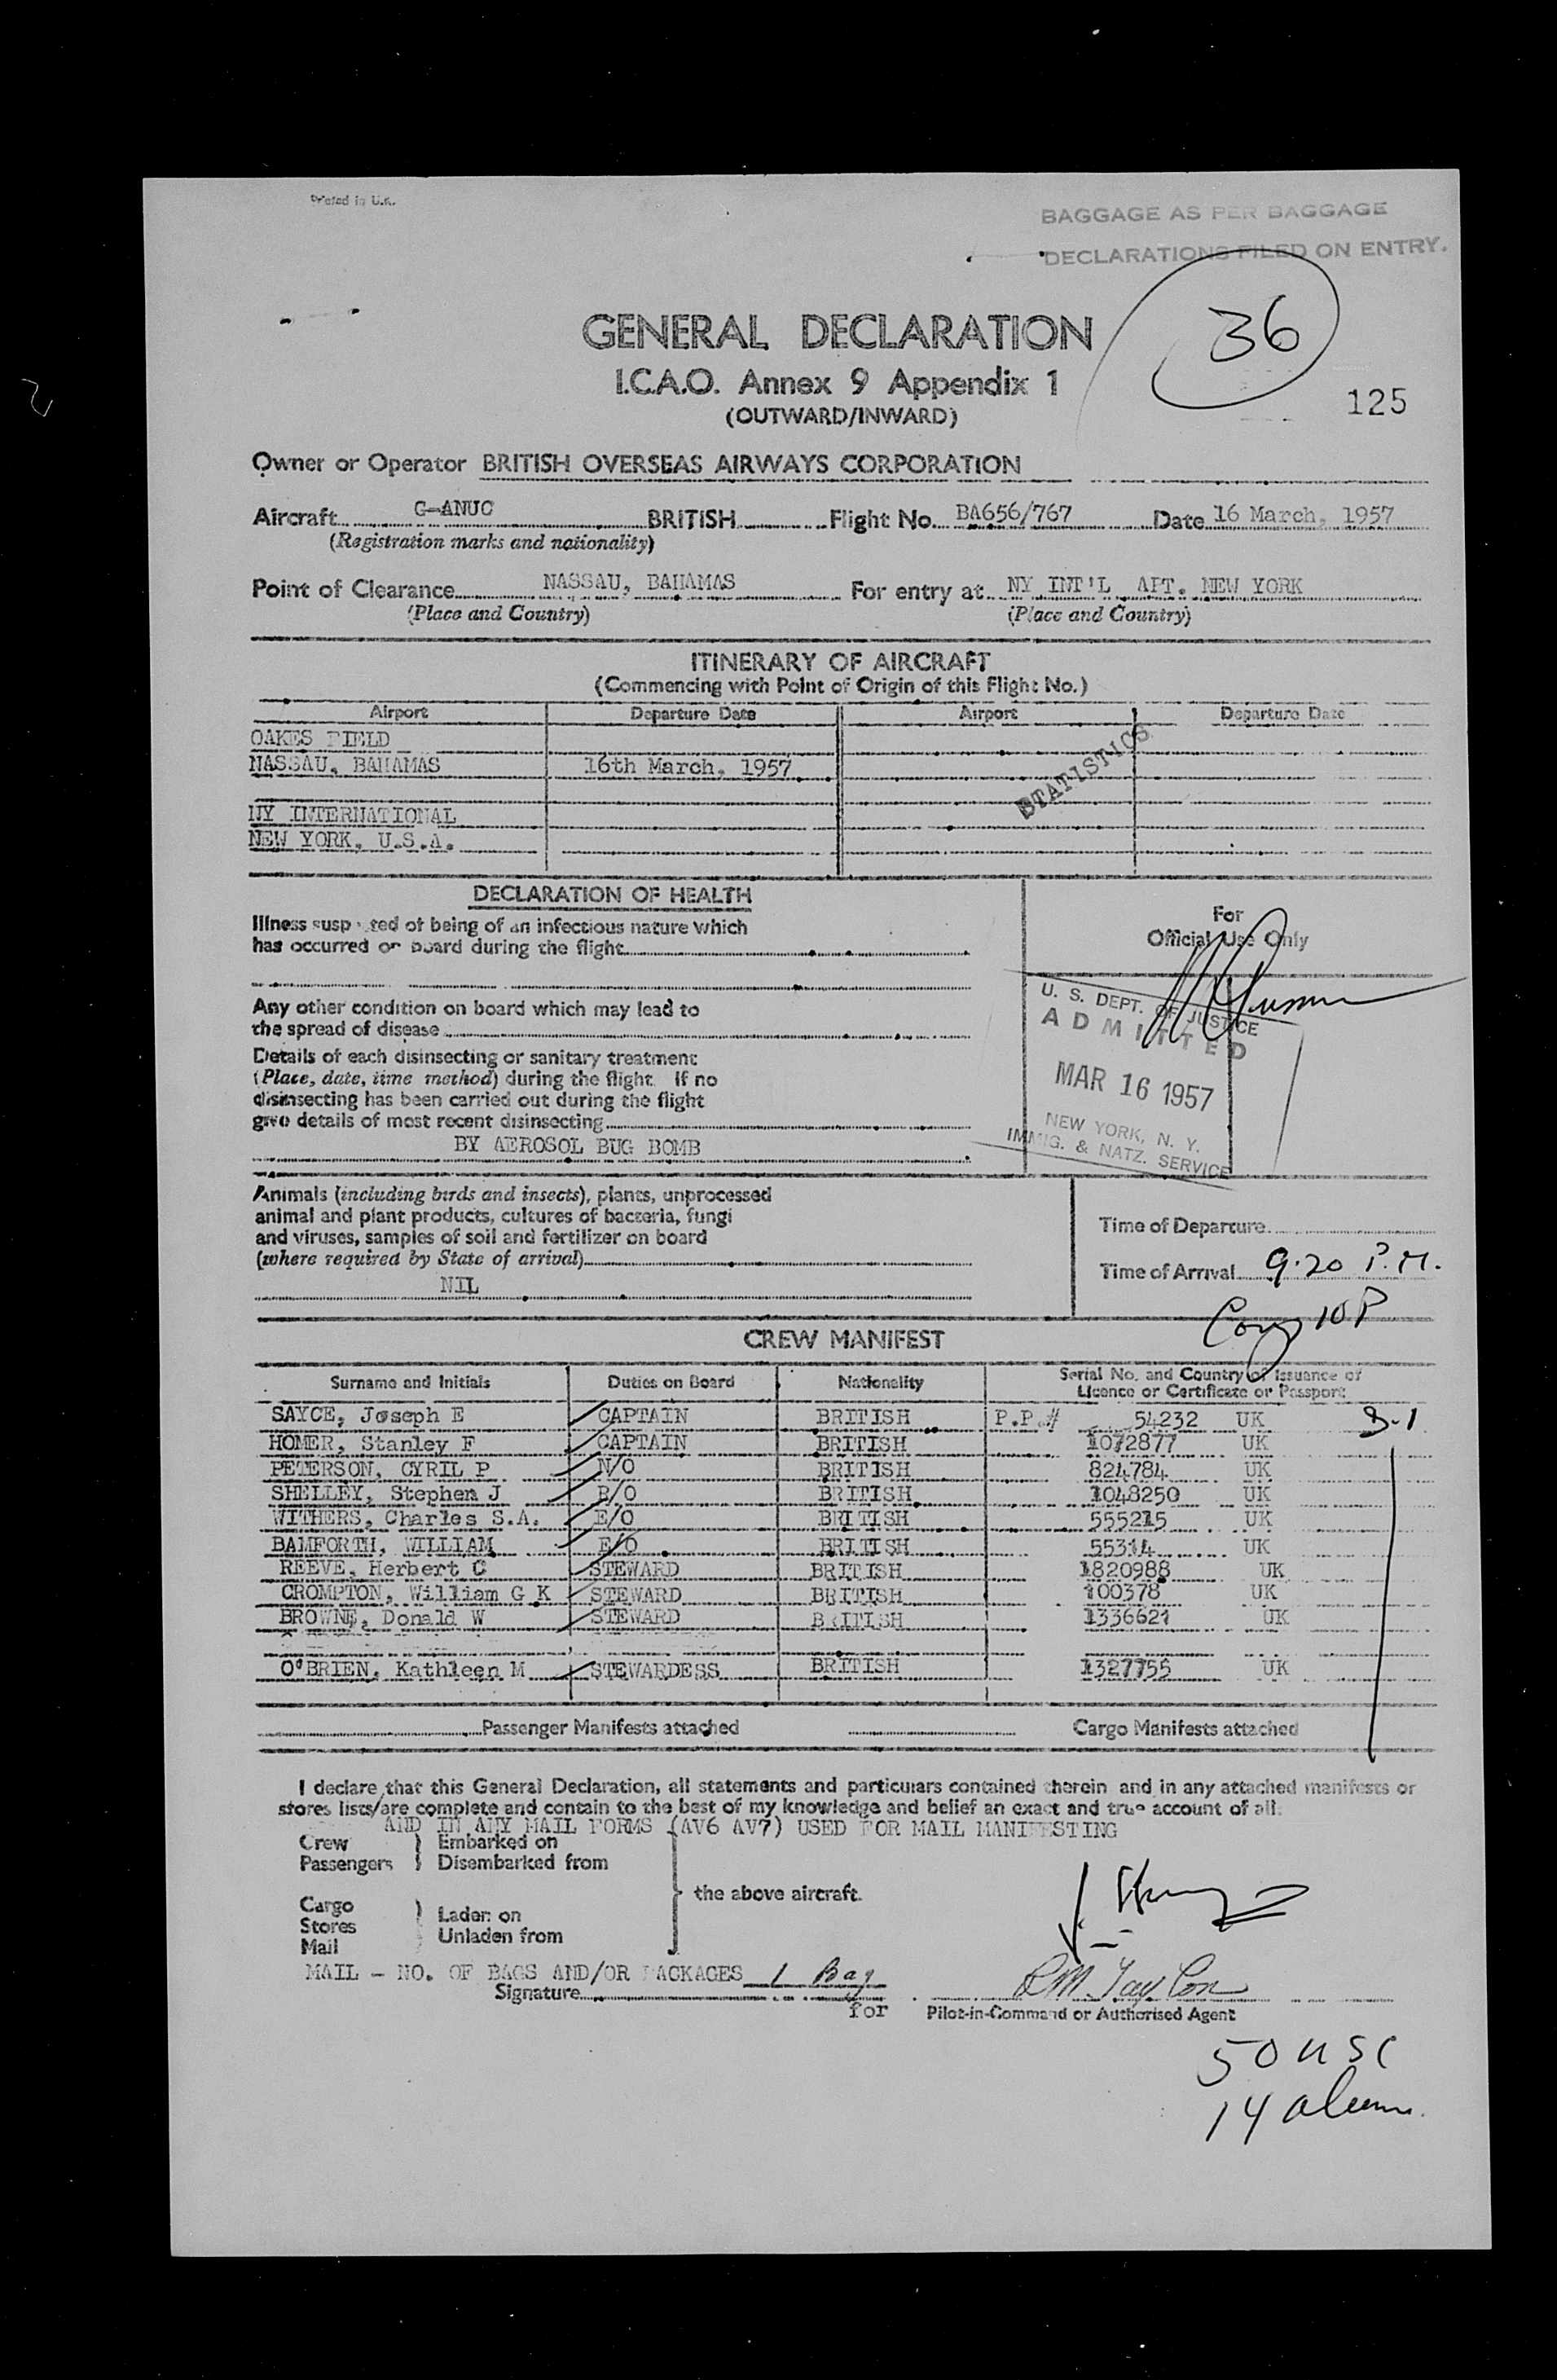 Printed in U.K.
BAGGAGE AS PER BAGGAGE
DECLARATIONS FILED ON ENTRY.
36
GENERAL DECLARATION
I.C.A.O. Annex 9 Appendix 1
125
(OUTWARD/INWARD)
Owner or Operator BRITISH OVERSEAS AIRWAYS CORPORATION
Aircraft G-ANUC BRITISH Flight No. BA656/767 Date 16 March, 1957
(Registration marks and nationality)
Point of Clearance NASSAU, BAHAMAS For entry at NY INT'L APT. NEW YORK
(Place and Country) (Place and Country)
ITINERARY OF AIRCRAFT
(Commencing with Point of Origin of this Flight No.)
Airport Departure Date Airport Departure Date
OAKES FIELD
NASSAU, BAHAMAS 16th March, 1957
STATISTICS
NY INTERNATIONAL
NEW YORK, U.S.A.
DECLARATION OF HEALTH
Illness suspected of being of an infectious nature which
has occurred on board during the flight
Any other condition on board which may lead to
the spread of disease
Details of each disinsecting or sanitary treatment
(Place, date, time method) during the flight. If no
disinsecting has been carried out during the flight
give details of most recent disinsecting
BY AEROSOL BUG BOMB
For
Official Use Only
U. S. DEPT. OF JUSTICE
ADMITTED
MAR 16 1957
NEW YORK, N. Y.
IMMIG. & NATZ. SERVICE
Animals (including birds and insects), plants, unprocessed
animal and plant products, cultures of bacteria, fungi
and viruses, samples of soil and fertilizer on board
(where required by State of arrival)
NIL
Time of Departure
Time of Arrival 9.20 P.M.
10 P
CREW MANIFEST
Surname and Initials Duties on Board Nationality Serial No. and Country of Issuance of
Licence or Certificate or Passport
SAYCE, Joseph E CAPTAIN BRITISH P.P.# 54232 UK 3-1
HOMER, Stanley F CAPTAIN BRITISH 1072877 UK
PETERSON, CYRIL P N/O BRITISH 824784 UK
SHELLEY, Stephen J R/O BRITISH 1048250 UK
WITHERS, Charles S.A. E/O BRITISH 555215 UK
BAMFORTH, WILLIAM E/O BRITISH 55314 UK
REEVE, Herbert C STEWARD BRITISH 1820988 UK
CROMPTON, William G K STEWARD BRITISH 100378 UK
BROWNE, Donald W STEWARD BRITISH 1336621 UK
O'BRIEN, Kathleen M STEWARDESS BRITISH 1327755 UK
Passenger Manifests attached Cargo Manifests attached
I declare that this General Declaration, all statements and particulars contained therein and in any attached manifests or
stores lists/are complete and contain to the best of my knowledge and belief an exact and true account of all:
AND IN ANY MAIL FORMS (AV6 AV7) USED FOR MAIL MANIFESTING
Crew } Embarked on
Passengers } Disembarked from
the above aircraft.
Cargo
Stores } Laden on
Mail Unladen from
MAIL - NO. OF BAGS AND/OR PACKAGES 1 Bag
Signature RM Taylor
for Pilot-in-Command or Authorised Agent
50 USC
14 aliens